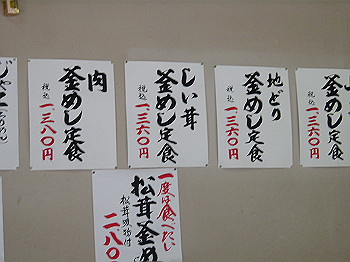 地どり
釜めし定食
税込
一、三六〇円
しい茸
釜めし定食
税込
一、三六〇円
肉
釜めし定食
税込
一、三八〇円
一度は食べたい
松茸釜め
松茸吸物付
二、八〇
釜めし定食
税込
一、三六〇円
じゃこ(ちりめん)